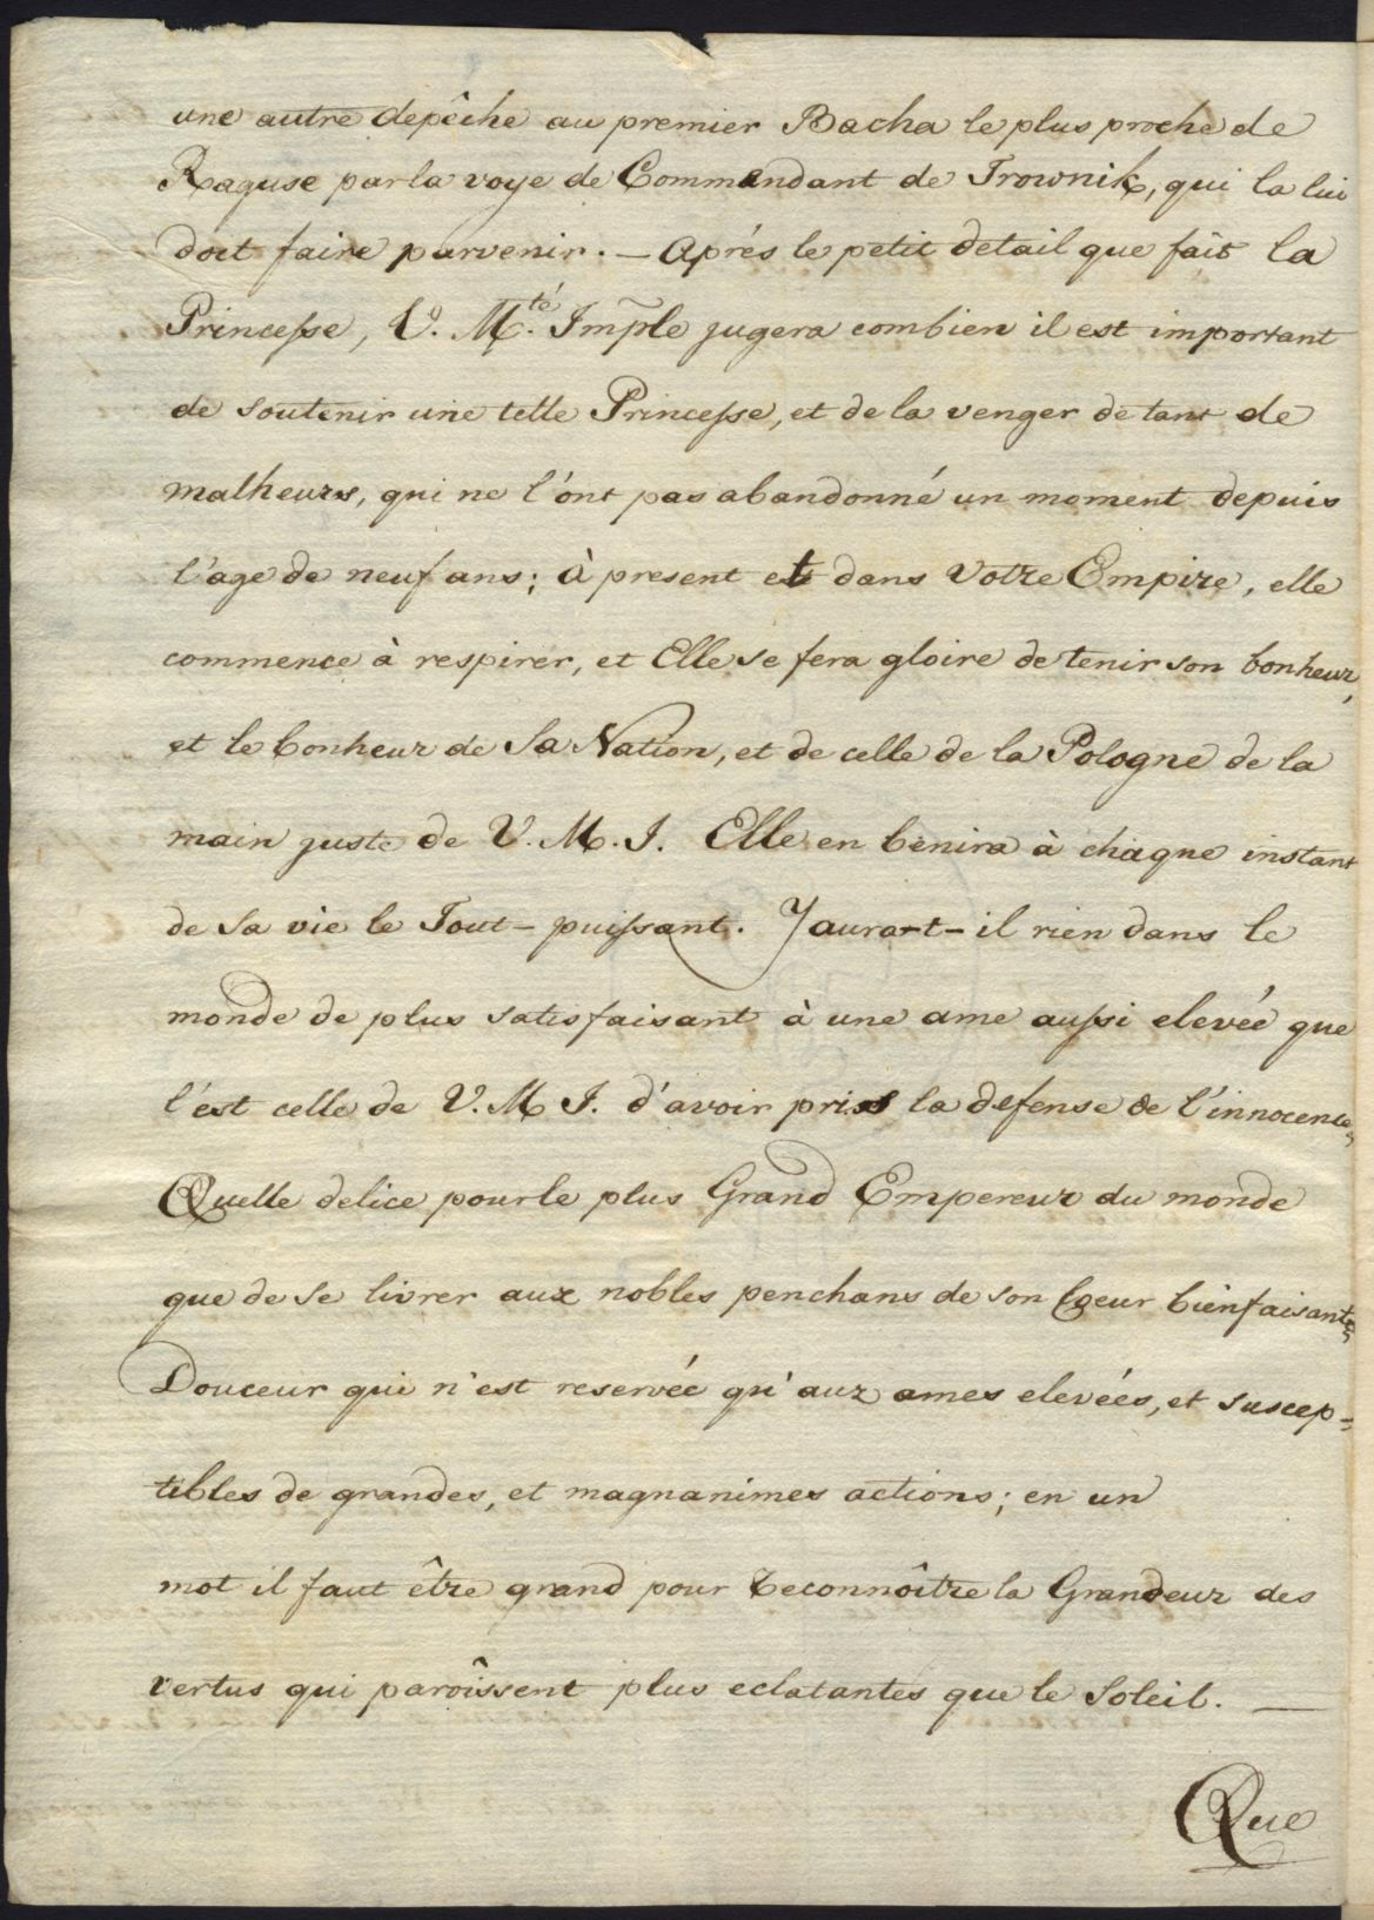 une autre depêche au premier Bacha le plus proche de
Raguse par la voye de Commendant de Trownik, qui la lui
doit faire parvenir. — Aprés le petit detail que fait la
Princesse, V. M.té Imple jugera combien il est important
de soutenir une telle Princesse, et de la venger de tant de
malheurs, qui ne l'ont pas abandonné un moment depuis
l'age de neuf ans; à present et dans Votre Empire, elle
commence à respirer, et Elle se fera gloire de tenir son bonheur,
et le bonheur de sa Nation, et de celle de la Pologne de la
main juste de V. M. I. Elle en benira à chaque instant
de sa vie le Tout-puissant. Y aura-t-il rien dans le
monde de plus satisfaisant à une ame aussi elevée que
l'est celle de V. M. I. d'avoir pris la defense de l'innocence,
Quelle delice pour le plus Grand Empereur du monde
que de se livrer aux nobles penchans de son Coeur bienfaisant,
Douceur qui n'est reservée qu'aux ames elevées, et suscep-
tibles de grandes, et magnanimes actions; en un
mot il faut être grand pour reconnôitre la Grandeur des
vertus qui parôissent plus eclatantes que le Soleil. —
Que